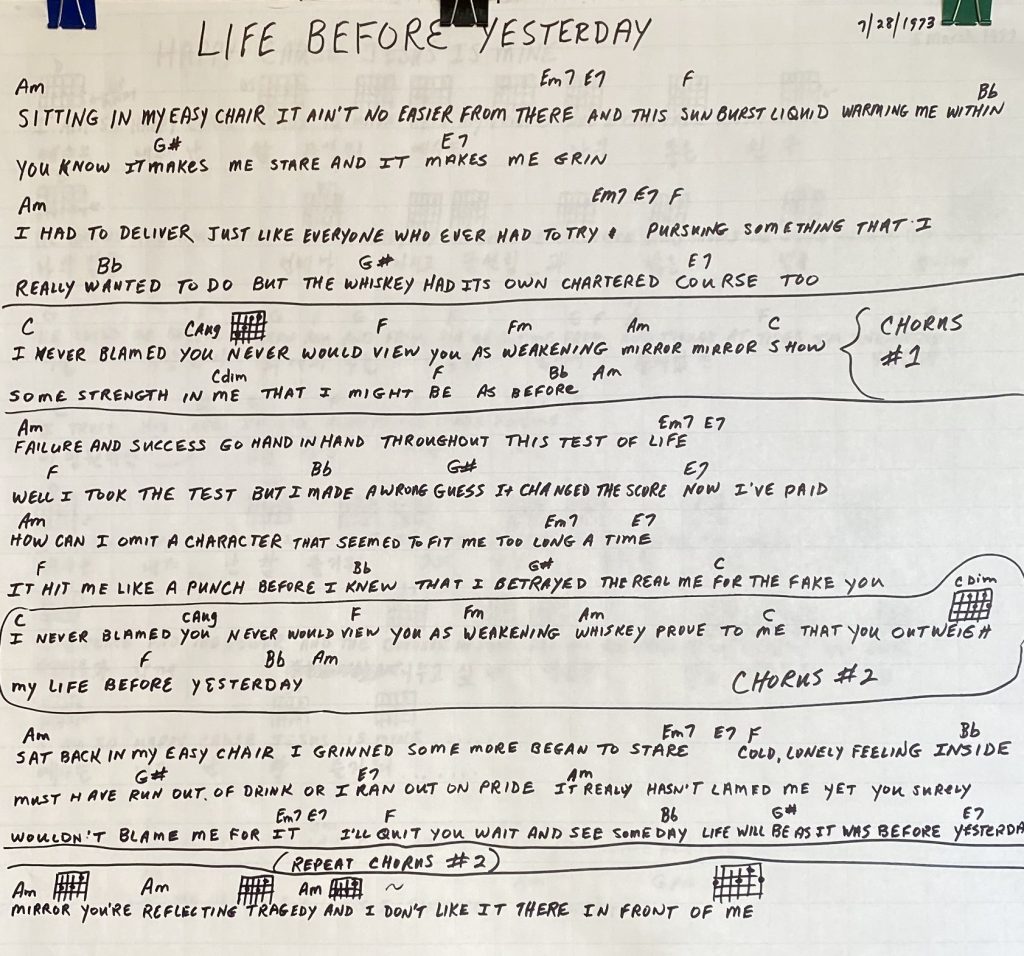 LIFE BEFORE YESTERDAY 7/28/1973
Am Em7 E7 F Bb
SITTING IN MY EASY CHAIR IT AIN'T NO EASIER FROM THERE AND THIS SUN BURST LIQUID WARMING ME WITHIN
G# E7
YOU KNOW IT MAKES ME STARE AND IT MAKES ME GRIN
Am Em7 E7 F
I HAD TO DELIVER JUST LIKE EVERYONE WHO EVER HAD TO TRY & PURSUING SOMETHING THAT I
Bb G# E7
REALLY WANTED TO DO BUT THE WHISKEY HAD ITS OWN CHARTERED COURSE TOO
C CAug F Fm Am C
I NEVER BLAMED YOU NEVER WOULD VIEW YOU AS WEAKENING MIRROR MIRROR SHOW
Cdim F Bb Am
SOME STRENGTH IN ME THAT I MIGHT BE AS BEFORE
CHORUS
#1
Am Em7 E7
FAILURE AND SUCCESS GO HAND IN HAND THROUGHOUT THIS TEST OF LIFE
F Bb G# E7
WELL I TOOK THE TEST BUT I MADE A WRONG GUESS It CHANGED THE SCORE NOW I'VE PAID
Am Em7 E7
HOW CAN I OMIT A CHARACTER THAT SEEMED TO FIT ME TOO LONG A TIME
F Bb G# C
IT HIT ME LIKE A PUNCH BEFORE I KNEW THAT I BETRAYED THE REAL ME FOR THE FAKE YOU
C CAug F Fm Am C CDim
I NEVER BLAMED YOU NEVER WOULD VIEW YOU AS WEAKENING WHISKEY PROVE TO ME THAT YOU OUTWEIGH
F Bb Am
MY LIFE BEFORE YESTERDAY
CHORUS #2
Am Em7 E7 F Bb
SAT BACK IN MY EASY CHAIR I GRINNED SOME MORE BEGAN TO STARE COLD, LONELY FEELING INSIDE
G# E7 Am
MUST HAVE RUN OUT OF DRINK OR I RAN OUT ON PRIDE IT REALY HASN'T LAMED ME YET YOU SURELY
Em7 E7 F Bb G# E7
WOULDN'T BLAME ME FOR IT I'LL QUIT YOU WAIT AND SEE SOMEDAY LIFE WILL BE AS IT WAS BEFORE YESTERDA
(REPEAT CHORUS #2)
Am Am Am ~
MIRROR YOU'RE REFLECTING TRAGEDY AND I DON'T LIKE IT THERE IN FRONT OF ME